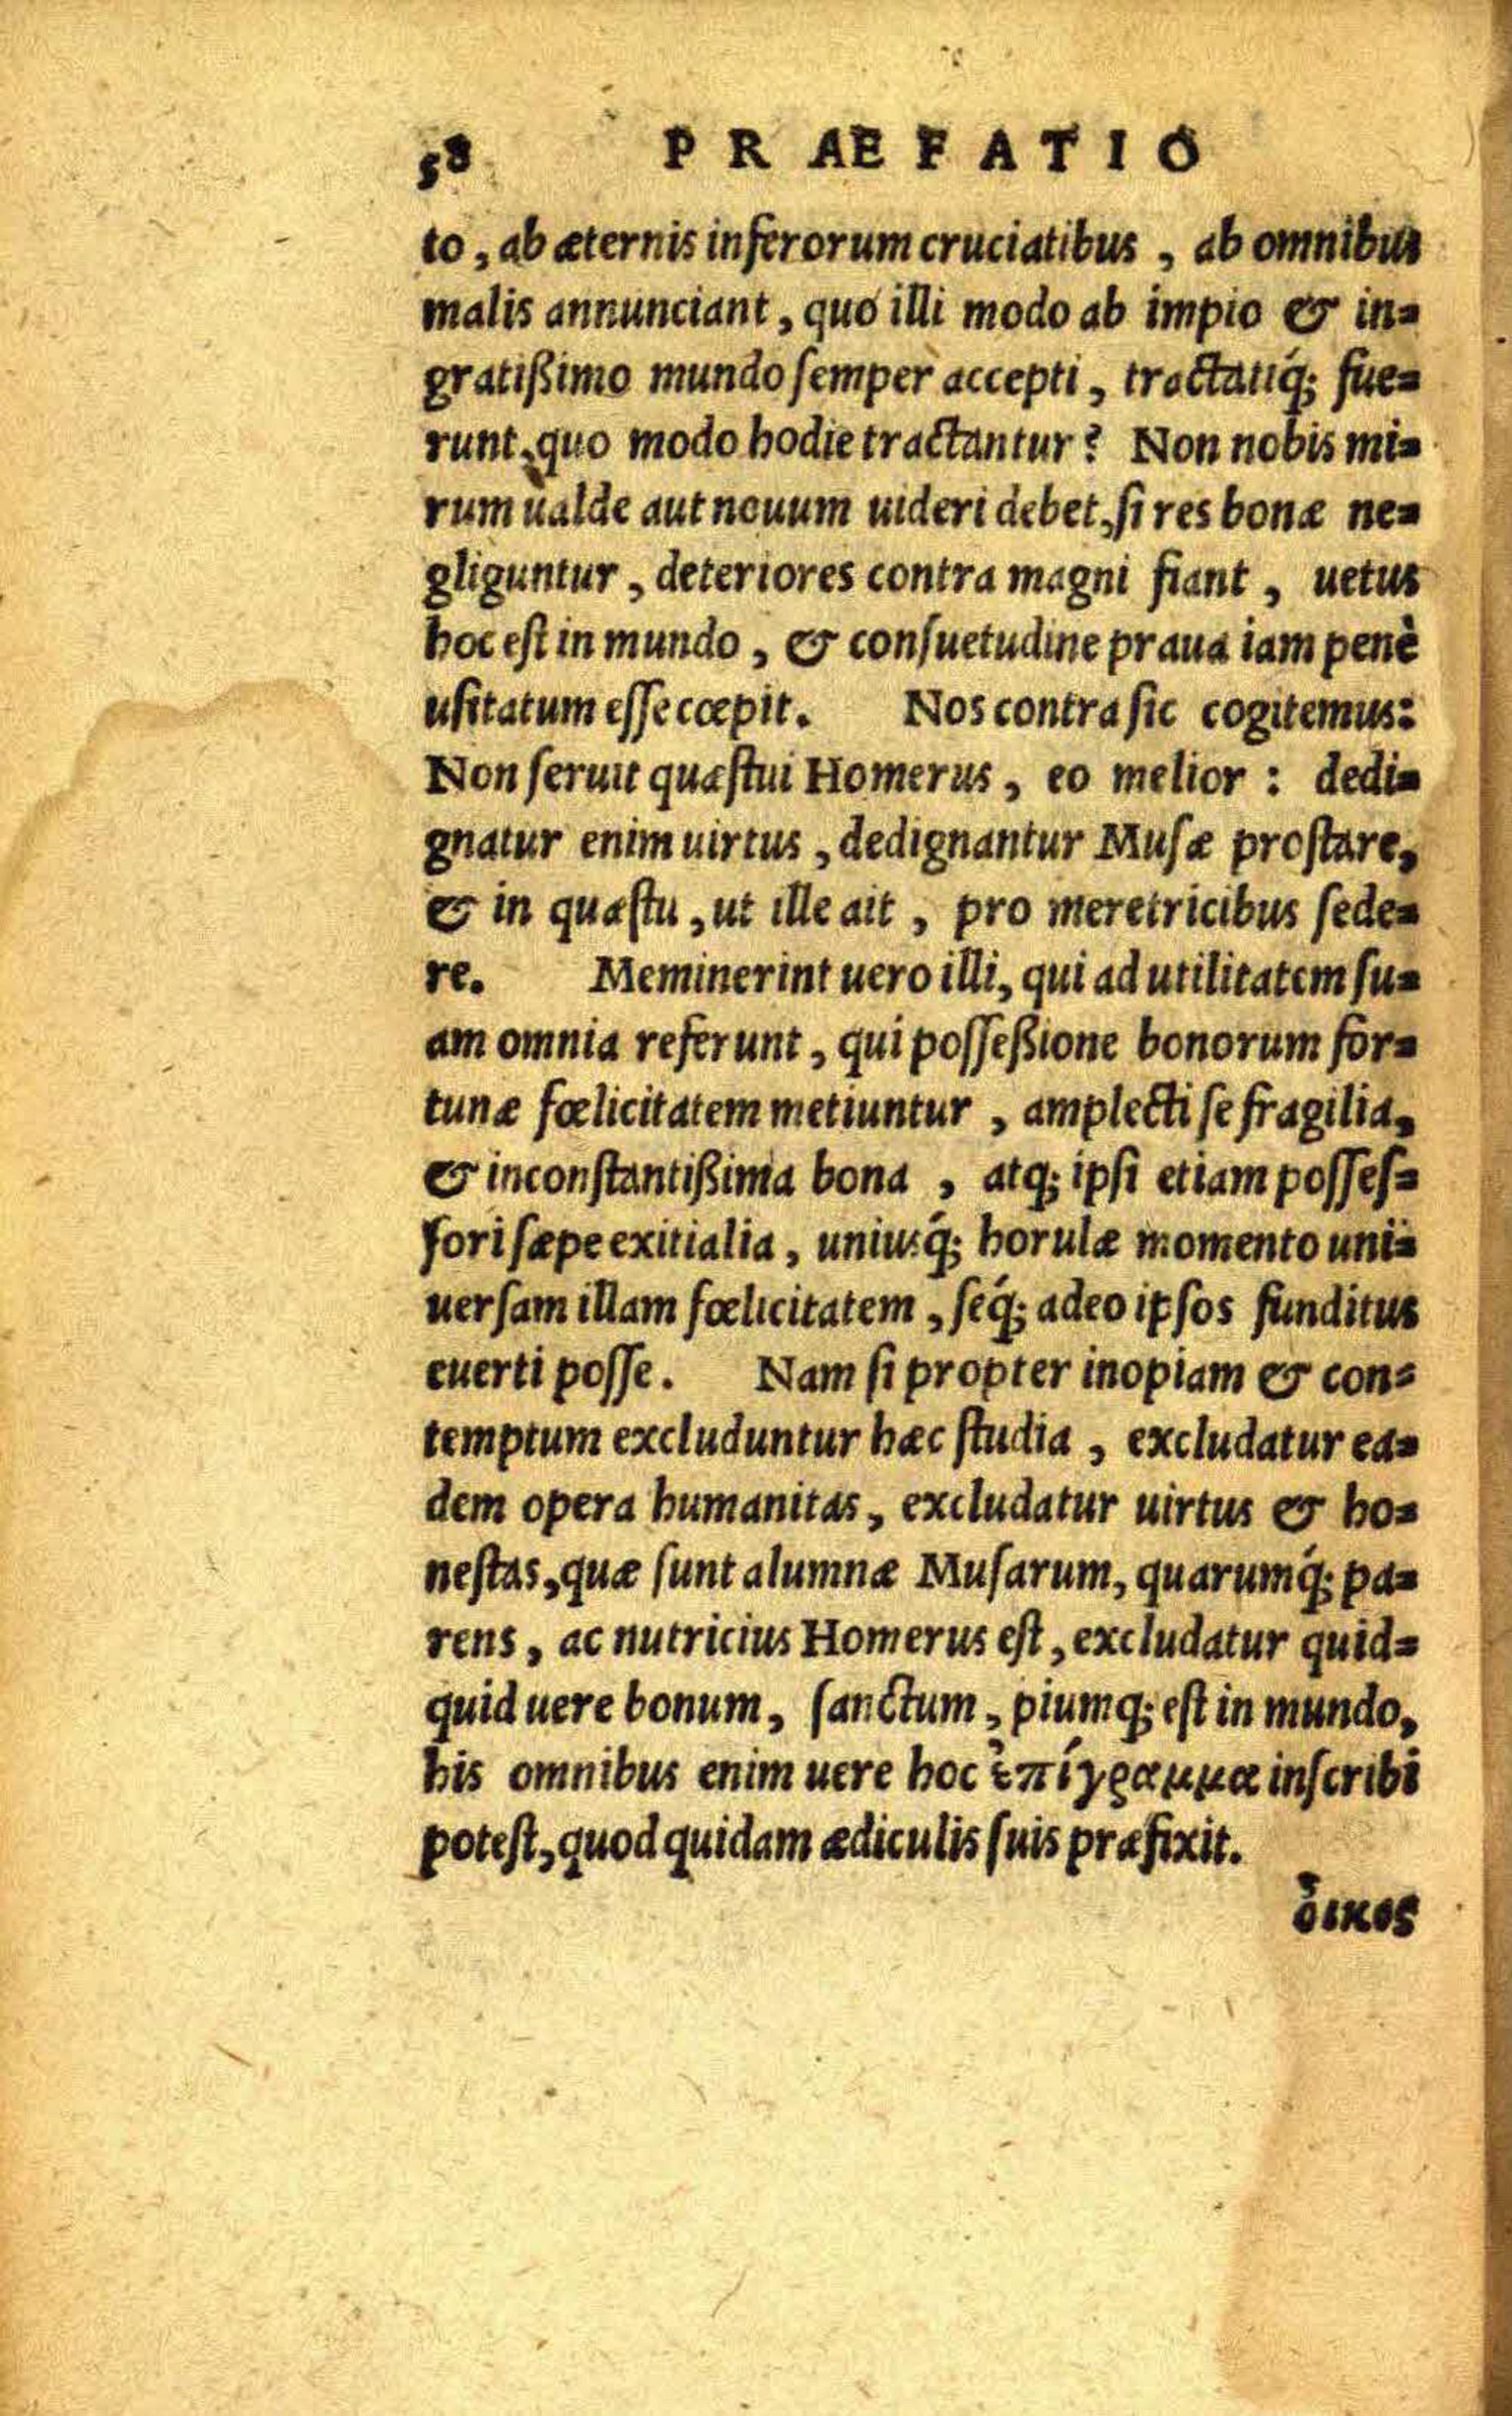 58 PRAEFATIO
to, ab æternis inferorum cruciatibus, ab omnibus
malis annunciant, quo illi modo ab impio & in-
gratißimo mundo ſemper accepti, tractatiq́; fue-
runt, quo modo hodie tractantur? Non nobis mi-
rum ualde aut nouum uideri debet, ſi res bonæ ne-
gliguntur, deteriores contra magni fiant, uetus
hoc eſt in mundo, & conſuetudine praua iam penè
uſitatum eſſe cœpit. Nos contra ſic cogitemus:
Non ſeruit quæſtui Homerus, eo melior: dedi-
gnatur enim uirtus, dedignantur Muſæ proſtare,
& in quæſtu, ut ille ait, pro meretricibus ſede-
re. Meminerint uero illi, qui ad utilitatem ſu-
am omnia referunt, qui poſſeßione bonorum for-
tunæ fœlicitatem metiuntur, amplecti ſe fragilia,
& inconſtantißima bona, atq; ipſi etiam poſſeſ-
ſori ſæpe exitialia, uniusq́; horulæ momento uni-
uerſam illam fœlicitatem, ſeq́; adeo ipſos funditus
euerti poſſe. Nam ſi propter inopiam & con-
temptum excluduntur hæc ſtudia, excludatur ea-
dem opera humanitas, excludatur uirtus & ho-
neſtas, quæ ſunt alumnæ Muſarum, quarumq́; pa-
rens, ac nutricius Homerus eſt, excludatur quid-
quid uere bonum, ſanctum, piumq; eſt in mundo,
his omnibus enim uere hoc ἐπίγραμμα inſcribi
poteſt, quod quidam ædiculis ſuis præfixit.
ὄικος